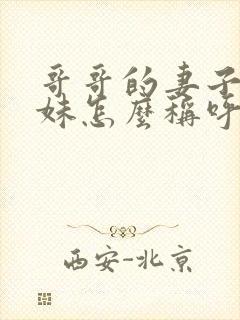 哥哥的妻子
妹怎麼稱呼
西安-北京